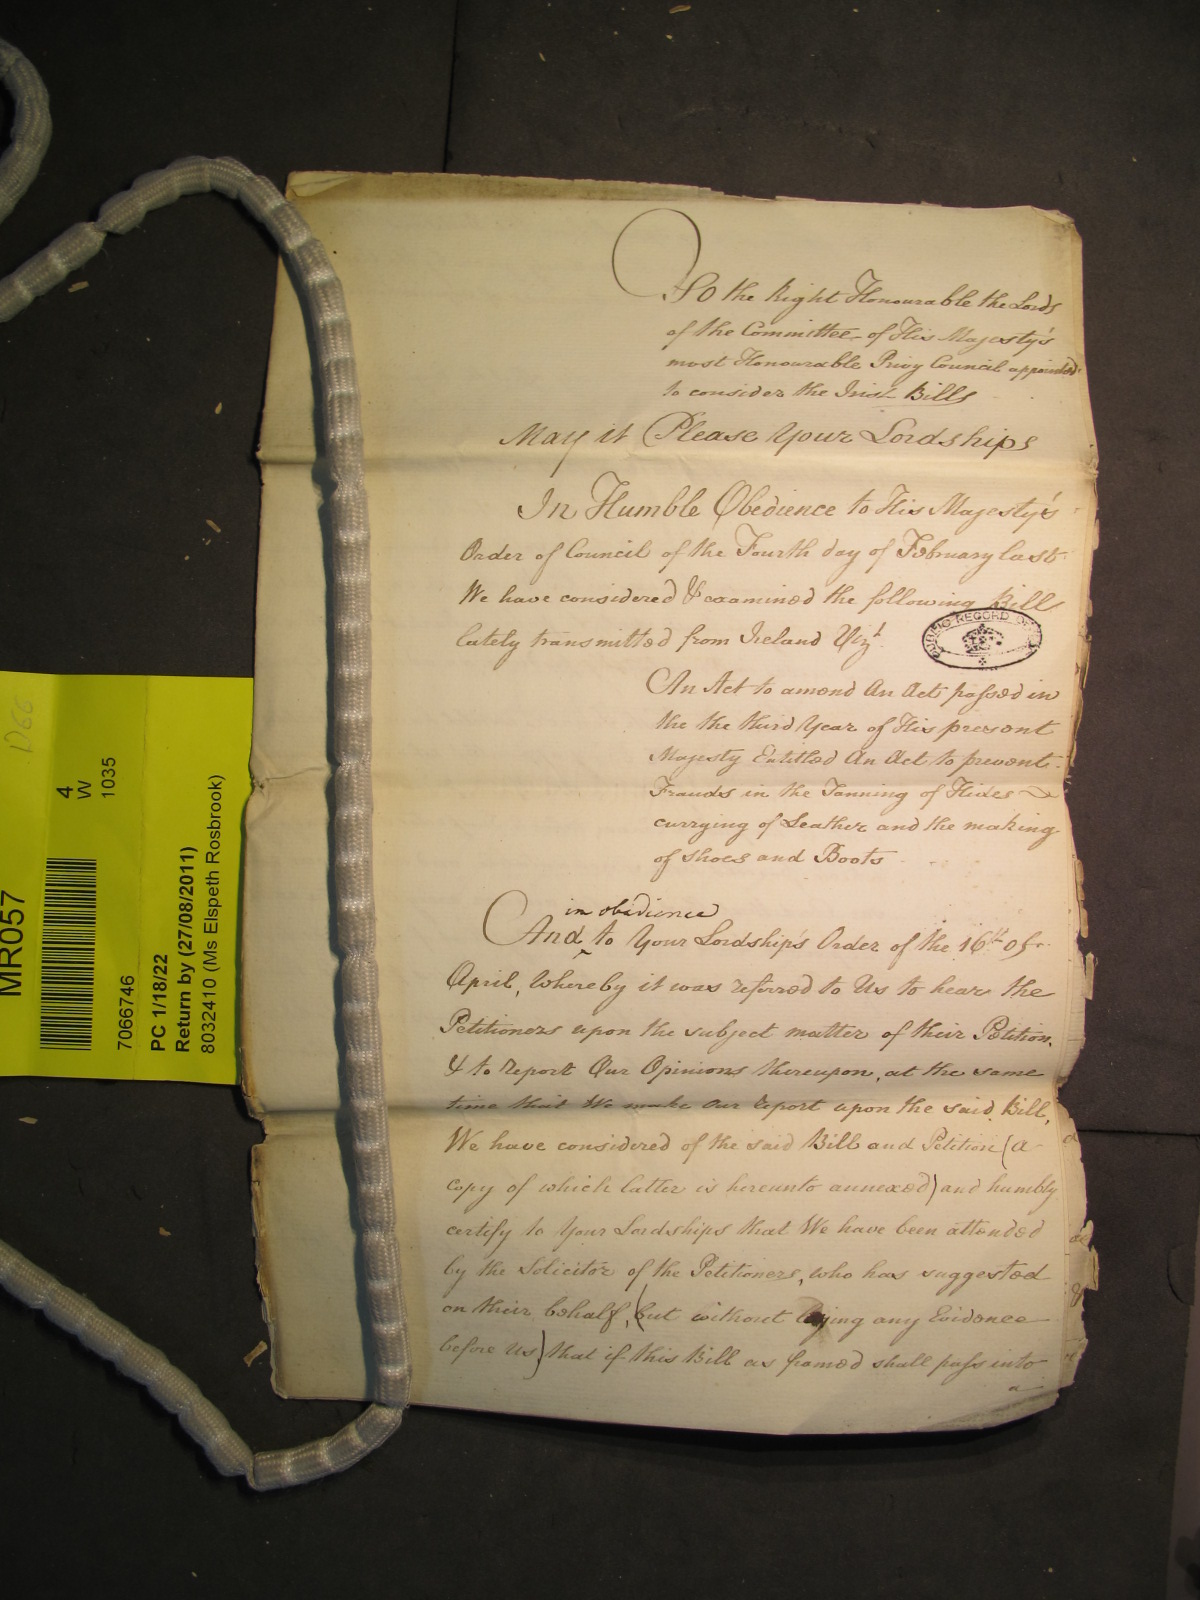 To the Right Honourable the Lords
of the Committee of His Majesty's
most Honourable Privy Council appointed
to consider the Irish Bills
May it Please Your Lordships
In Humble Obedience to His Majesty's
Order of Council of the Fourth day of February last
We have considered & examined the following Bills
lately transmitted from Ireland Vizt.
PUBLIC RECORD OFFICE
An Act to amend An Act passed in
the the third Year of His present
Majesty Entitled An Act to prevent
Frauds in the Tanning of Hides
currying of Leather and the making
of Shoes and Boots
in obedience
And ‸ to Your Lordship's Order of the 16th of
April, Whereby it was referred to Us to hear the
Petitioners upon the subject matter of their Petition,
& to report Our Opinions thereupon, at the same
time that We make Our report upon the said Bill,
We have considered of the said Bill and Petition (a
copy of which latter is hereunto annexed) and humbly
certify to Your Lordships that We have been attended
by the Solicitor of the Petitioners, who has suggested
on their behalf, (but without laying any Evidence
before Us) that if this Bill as framed shall pass into
a
D66
4
W
1035
MR057
7066746
PC 1/18/22
Return by (27/08/2011)
8032410 (Ms Elspeth Rosbrook)